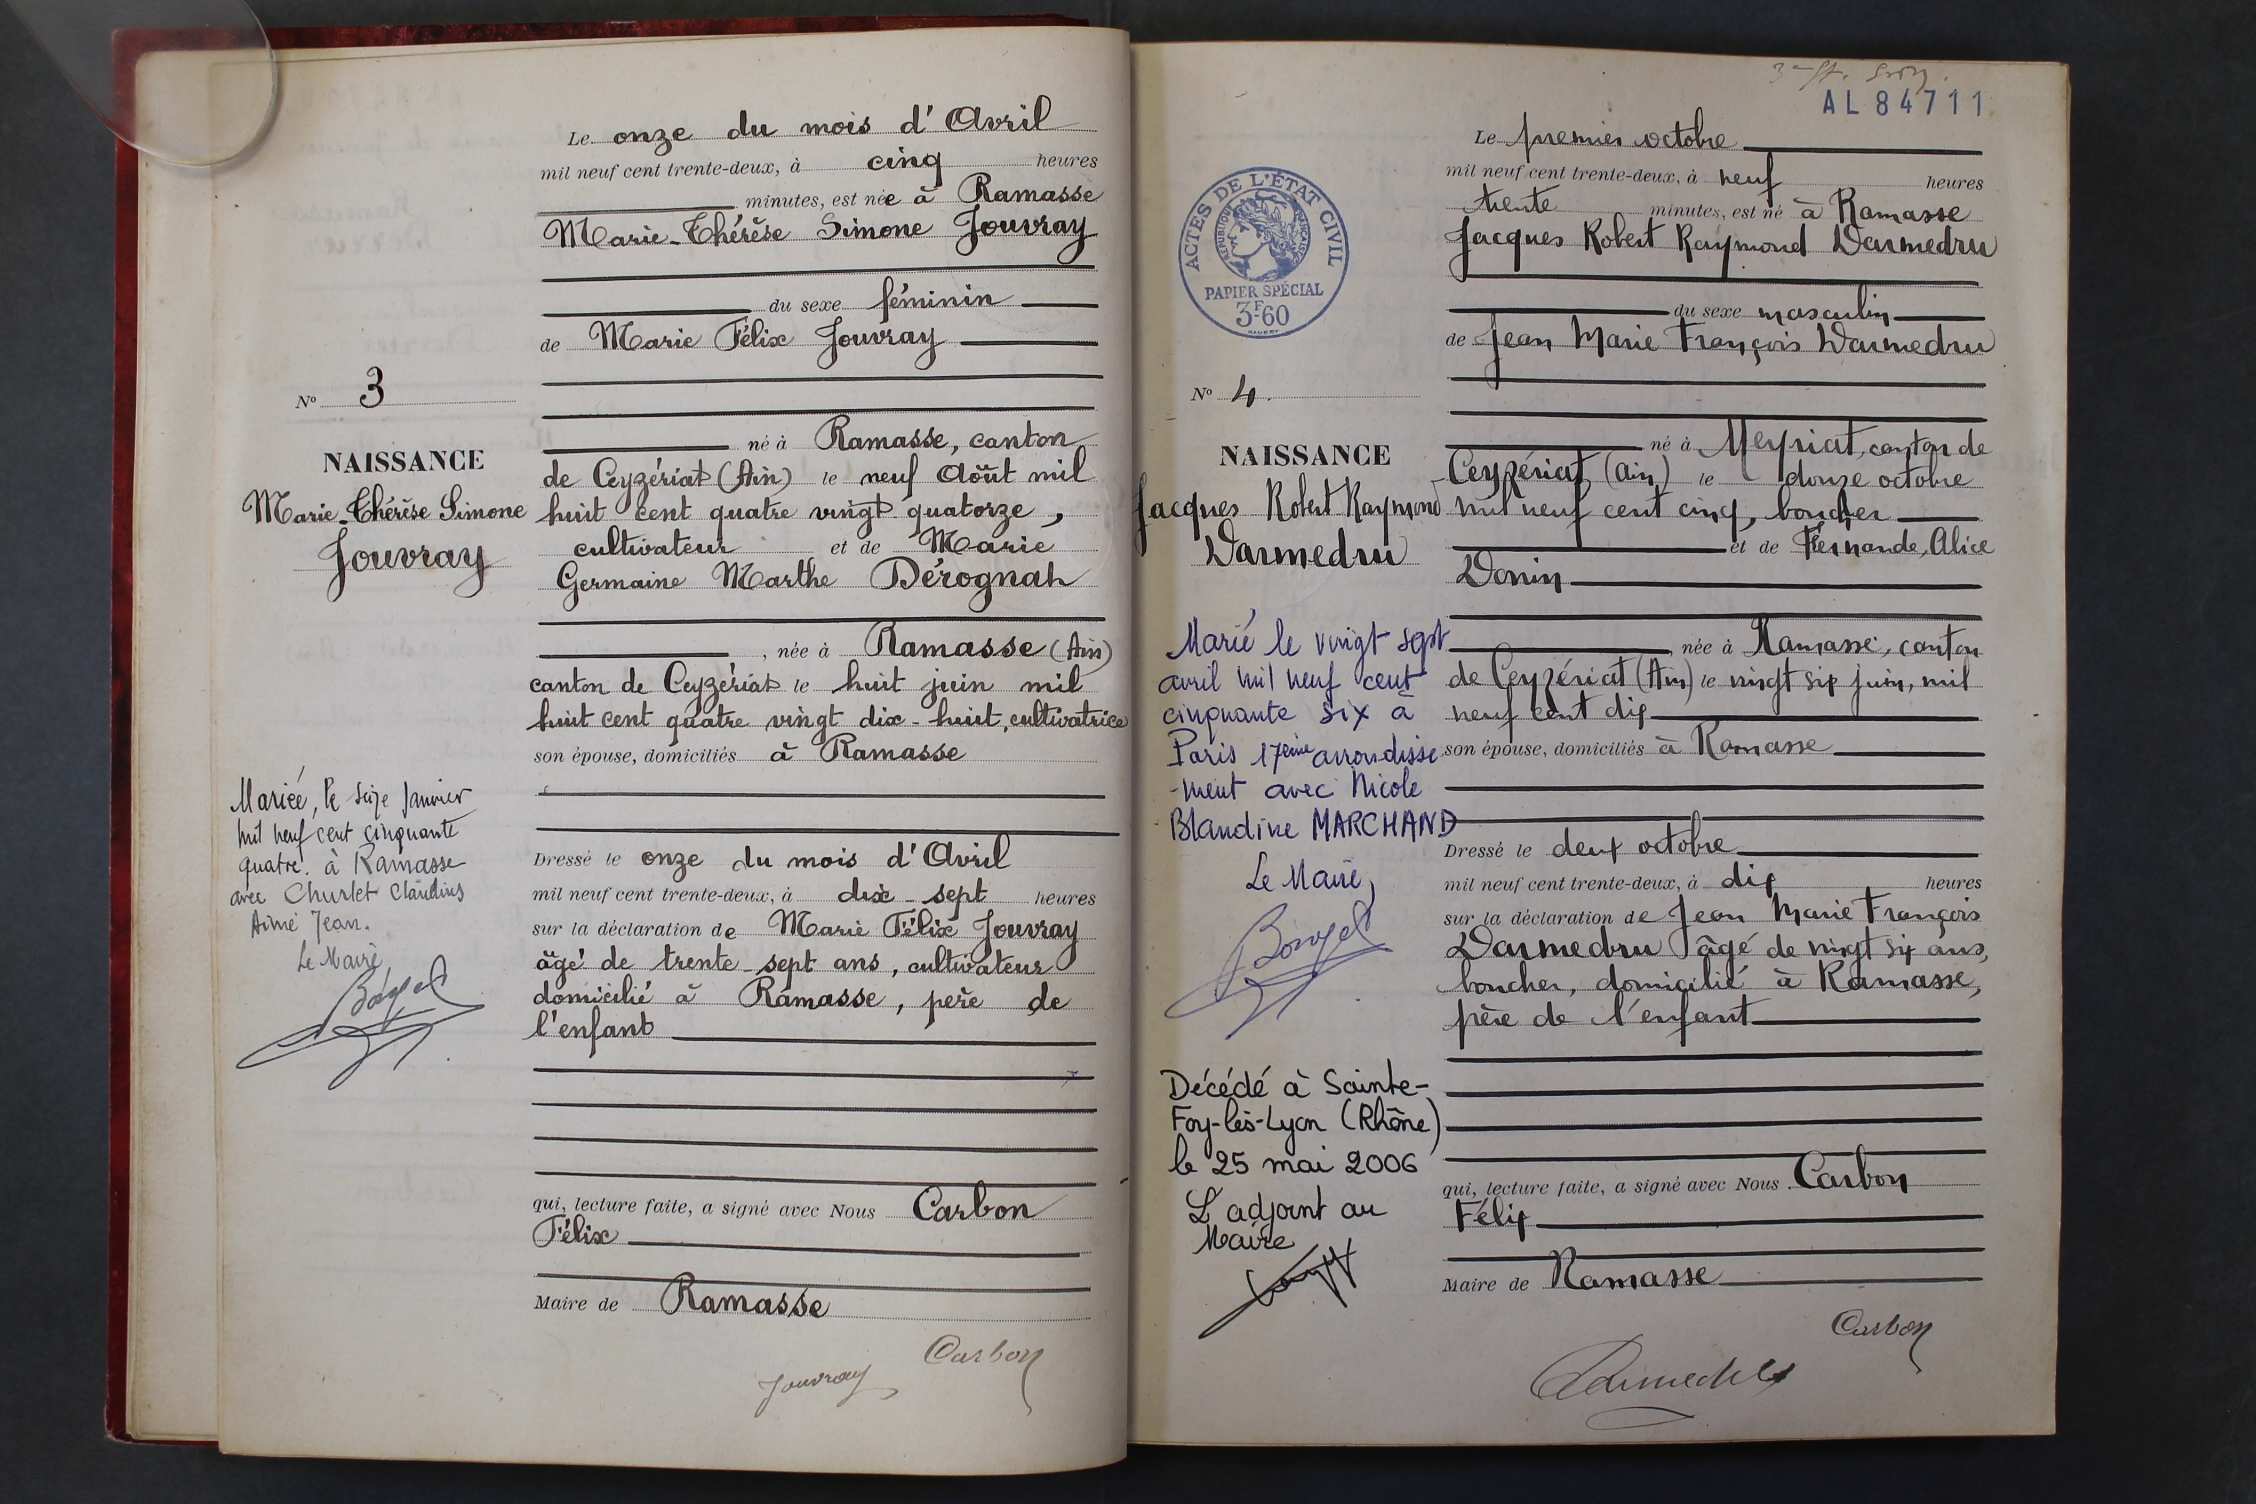 Le onze du mois d'Avril
mil neuf cent trente-deux, à cinq heures
minutes, est née à Ramasse
Marie-Thérèse Simone Jouvray
du sexe féminin
de Marie Félix Jouvray
N° 3
né à Ramasse, canton
NAISSANCE
de Ceyzériat (Ain) le neuf Août mil
Marie-Thérèse Simone
huit cent quatre vingt quatorze,
Jouvray
cultivateur et de Marie
Germaine Marthe Dérognat
, née à Ramasse (Ain)
canton de Ceyzériat le huit juin mil
huit cent quatre vingt dix-huit, cultivatrice
son épouse, domiciliés à Ramasse
Mariée, le seize Janvier
mil neuf cent cinquante
quatre. à Ramasse
avec Churlet Claudius
Aimé Jean.
Le Maire
Dressé le onze du mois d'Avril
mil neuf cent trente-deux, à dix-sept heures
sur la déclaration de Marie Félix Jouvray
âgé de trente-sept ans, cultivateur
domicilié à Ramasse, père de
l'enfant
qui, lecture faite, a signé avec Nous Carbon
Félix
Maire de Ramasse
Jouvray
Carbon
AL 84711
Le premier octobre
mil neuf cent trente-deux, à neuf heures
trente minutes, est né à Ramasse
Jacques Robert Raymond Darmedru
ACTES DE L'ÉTAT CIVIL
RÉPUBLIQUE FRANÇAISE
PAPIER SPÉCIAL
3F60
du sexe masculin
de Jean Marie François Darmedru
N° 4.
NAISSANCE
Jacques Robert Raymond
Darmedru
né à Meyriat, canton de
Ceyzériat (Ain) le douze octobre
mil neuf cent cinq, boucher
et de Fernande, Alice
Donin
née à Ramasse, canton
de Ceyzériat (Ain) le vingt six juin, mil
neuf cent dix
son épouse, domiciliés à Ramasse
Marié le vingt sept
avril mil neuf cent
cinquante six à
Paris 17ème arrondisse
-ment avec Nicole
Blandine MARCHAND
Le Maire,
Dressé le deux octobre
mil neuf cent trente-deux, à dix heures
sur la déclaration de Jean Marie François
Darmedru âgé de vingt six ans,
boucher, domicilié à Ramasse,
père de l'enfant
Décédé à Sainte-
Foy-lès-Lyon (Rhône)
le 25 mai 2006
L'adjoint au
Maire
qui, lecture faite, a signé avec Nous Carbon
Félix
Maire de Ramasse
Carbon
Darmedru